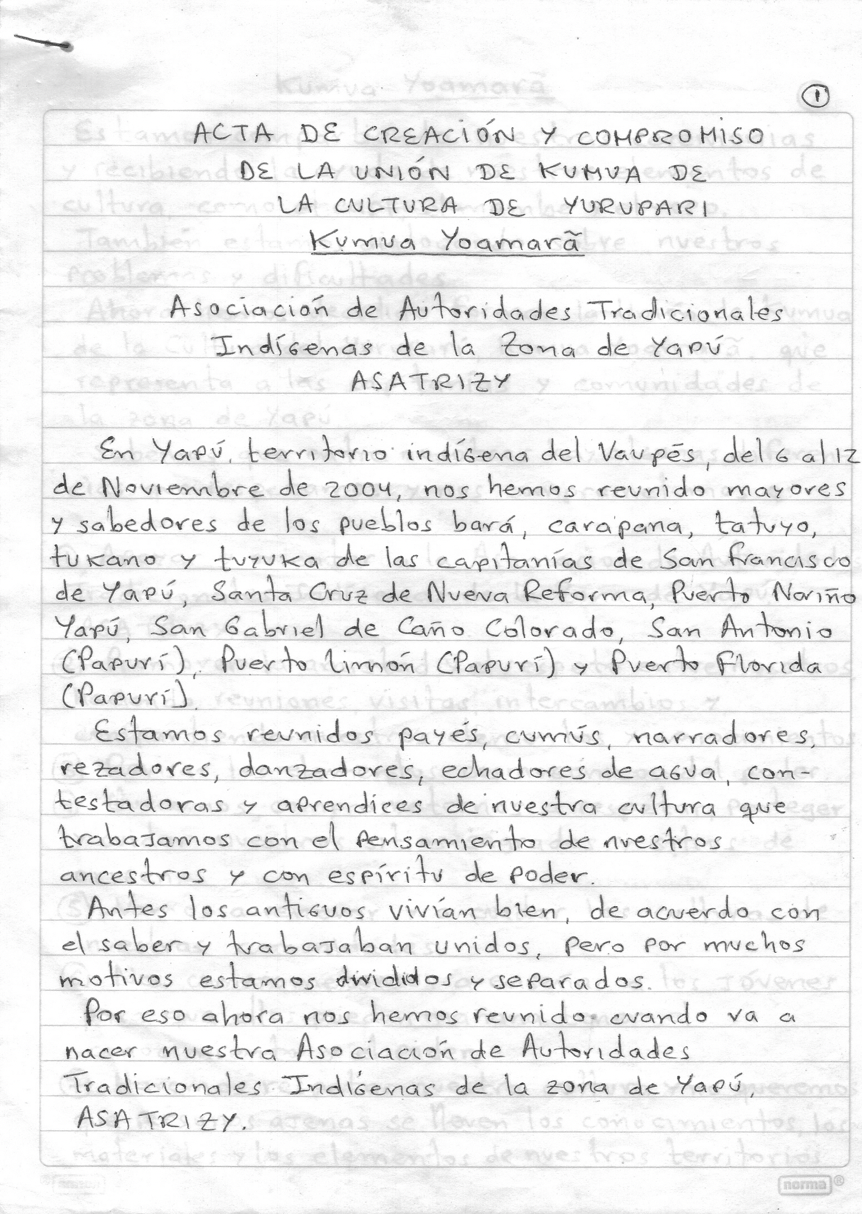 1
ACTA DE CREACIÓN Y COMPROMISO
DE LA UNIÓN DE KUMUA DE
LA CULTURA DE YURUPARI
Kumua Yoamarã
Asociación de Autoridades Tradicionales
Indígenas de la Zona de Yapú
ASATRIZY
En Yapú, territorio indígena del Vaupés, del 6 al 12
de Noviembre de 2004, nos hemos reunido mayores
y sabedores de los pueblos bará, carapana, tatuyo,
tukano y tuyuka de las capitanías de San Francisco
de Yapú, Santa Cruz de Nueva Reforma, Puerto Nariño
Yapú, San Gabriel de Caño Colorado, San Antonio
(Papurí), Puerto Limón (Papurí) y Puerto Florida
(Papurí).
Estamos reunidos payés, cumús, narradores,
rezadores, danzadores, echadores de agua, con-
testadoras y aprendices de nuestra cultura que
trabajamos con el pensamiento de nuestros
ancestros y con espíritu de poder.
Antes los antiguos vivían bien, de acuerdo con
el saber y trabajaban unidos, pero por muchos
motivos estamos divididos y separados.
Por eso ahora nos hemos reunido cuando va a
nacer nuestra Asociación de Autoridades
Tradicionales Indígenas de la zona de Yapú,
ASATRIZY.
norma®